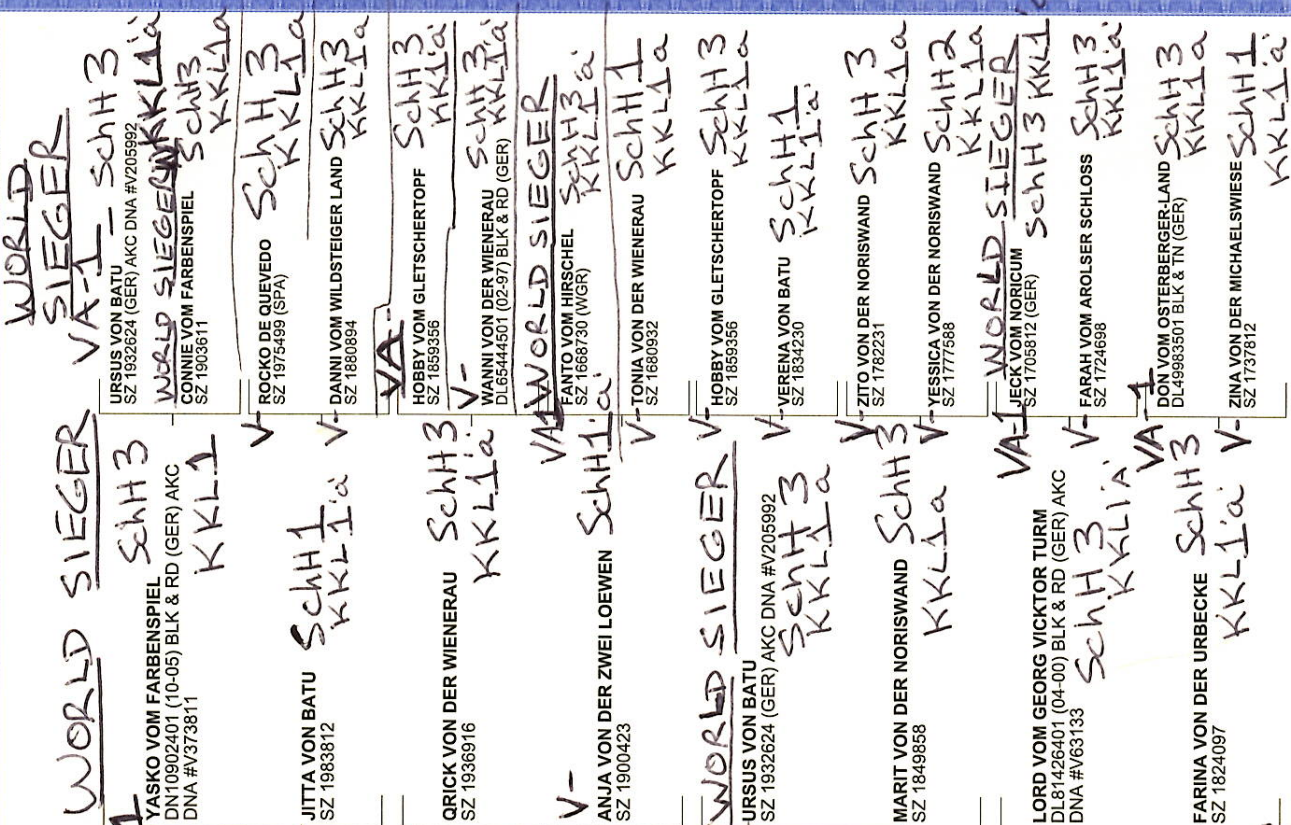 WORLD SIEGER
1
YASKO VOM FARBENSPIEL SchH 3
DN10902401 (10-05) BLK & RD (GER) AKC
DNA #V373811
KKL1
JITTA VON BATU SchH1
SZ 1983812
KKL1'a'
QRICK VON DER WIENERAU SchH3
SZ 1936916
KKL1'a'
V-
ANJA VON DER ZWEI LOEWEN SchH1'a'
SZ 1900423
WORLD SIEGER
URSUS VON BATU
SZ 1932624 (GER) AKC DNA #V205992
SchH 3
KKL1a
MARIT VON DER NORISWAND SchH3
SZ 1849858
KKL1a
LORD VOM GEORG VICKTOR TURM
DL81426401 (04-00) BLK & RD (GER) AKC
DNA #V63133
SchH3
KKL1'A'
FARINA VON DER URBECKE SchH3
SZ 1824097
KKL1'a'
WORLD
SIEGER
VA-1 - SchH 3
URSUS VON BATU
SZ 1932624 (GER) AKC DNA #V205992
KKL1'a'
WORLD SIEGERIN
CONNIE VOM FARBENSPIEL SchH3
SZ 1903611
KKL1a
V-
ROCKO DE QUEVEDO SchH3
SZ 1975499 (SPA)
KKL1a
V-
DANNI VOM WILDSTEIGER LAND SchH3
SZ 1880894
KKL1a
VA-
HOBBY VOM GLETSCHERTOPF SchH3
SZ 1859356
KKL1'a'
V-
WANNI VON DER WIENERAU SchH3
DL65444501 (02-97) BLK & RD (GER)
KKL1'a'
VA1 WORLD SIEGER
FANTO VOM HIRSCHEL SchH3
SZ 1668730 (WGR)
KKL1'a'
V- TONIA VON DER WIENERAU SchH1
SZ 1680932
KKL1a
V- HOBBY VOM GLETSCHERTOPF SchH3
SZ 1859356
KKL1a
V- VERENA VON BATU SchH1
SZ 1834230
KKL1'a'
V- ZITO VON DER NORISWAND SchH 3
SZ 1782231
KKL1a
V- YESSICA VON DER NORISWAND SchH2
SZ 1777588
KKL1a
VA-1 WORLD SIEGER
JECK VOM NORICUM SchH3 KKL1
SZ 1705812 (GER)
V- FARAH VOM AROLSER SCHLOSS SchH3
SZ 1724698
KKL1'a'
VA-1
DON VOM OSTERBERGER-LAND SchH3
DL49983501 BLK & TN (GER)
KKL1a
V- ZINA VON DER MICHAELSWIESE SchH1
SZ 1737812
KKL1'a'